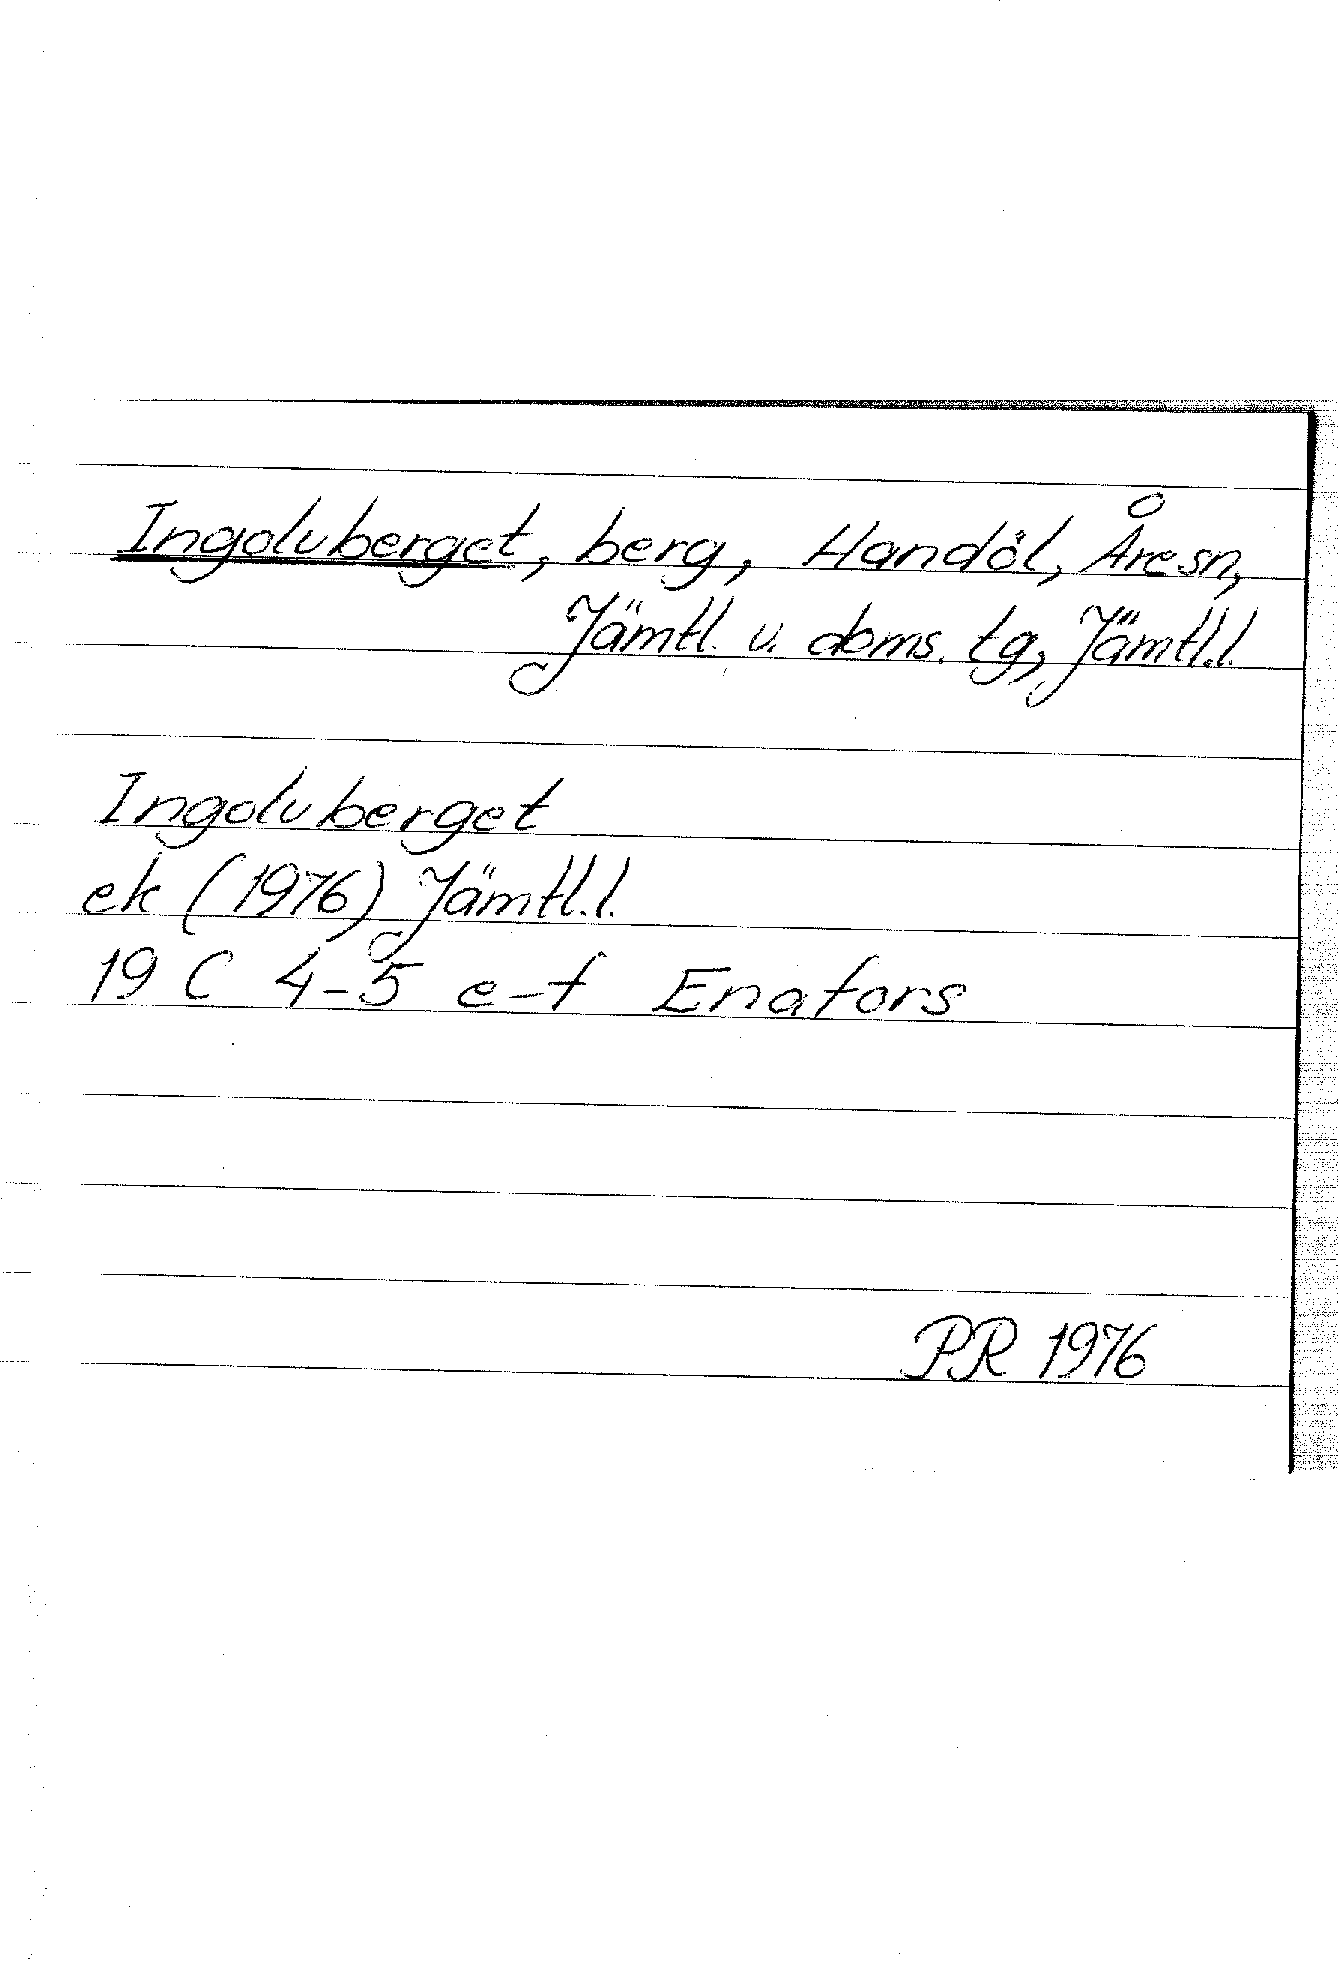 Ingolvberget, berg, Handöl, Åre sn,
Jämtl. v. doms. tg, Jämtl.l.
Ingolvberget
ek (1976) Jämtl.l.
19 C 4-5 e-f Enafors
PR 1976